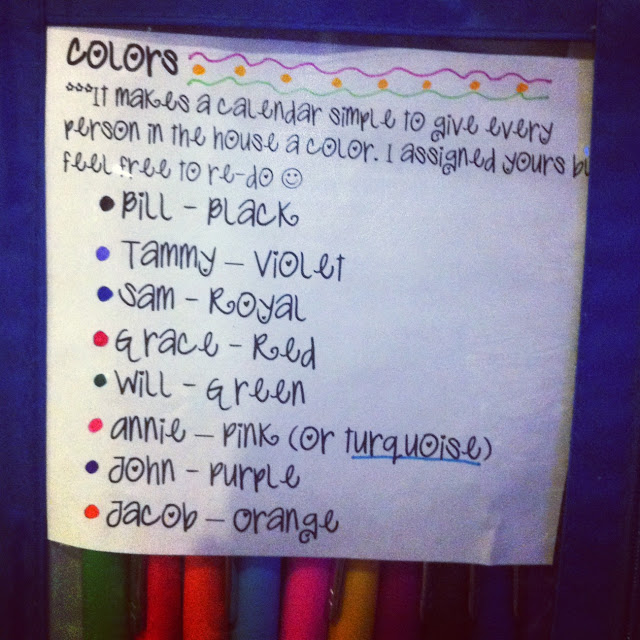 Colors
***It makes a calendar simple to give every
person in the house a color. I assigned yours bu
feel free to re-do ☺
• Bill – Black
• Tammy – Violet
• Sam – Royal
• Grace – Red
• Will – Green
• Annie – Pink (or turquoise)
• John – Purple
• Jacob – Orange